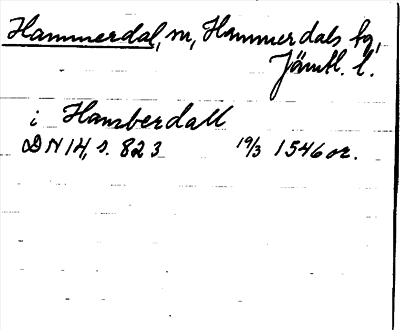 Hammerdal, m, Hammerdals sg,
Jämtl. l.
i Hamberdall
DN 14, s. 823 19/3 1546 or.